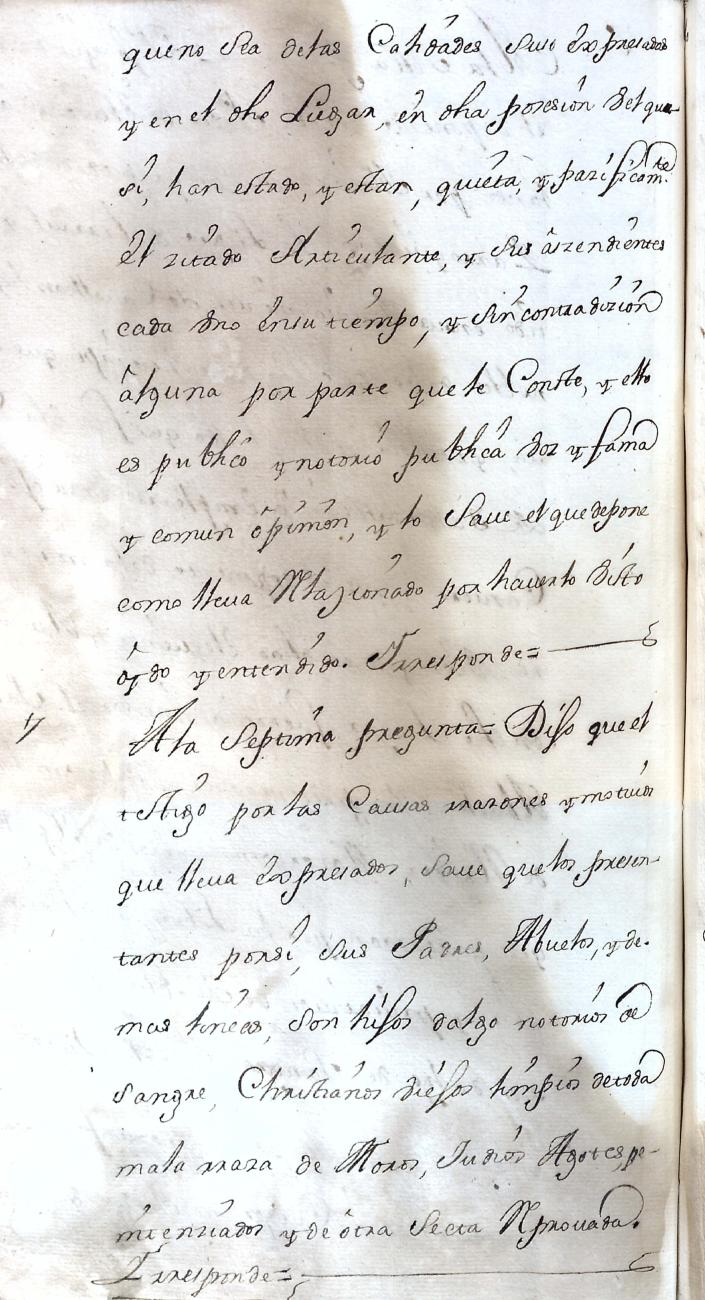 que no Sea de las Calidades suso expresadas
y en el dho Lugar, en dha posesion Vel qua
si, han estado, y estan, quieta, y pazificam.te
El zitado Articulante, y sus aszendientes
cada Vno en su tiempo, y sin contradizion
alguna por parte que le Conste, y ello
es publico y notorio publica Voz y fama
y comun opinion, y lo Save el que depone
como lleva Relazionado por haverlo Visto
oydo y entendido. Yrresponde=
A la Septima pregunta= Dijo que el
testigo por las Causas rrazones y motivos
que lleva expresados, Save que los presen-
tantes por si, sus Padres, Abuelos, y de-
mas lineas, son hijos dalgo notorios de
sangre, Christianos viejos limpios de toda
mala rraza de Moros, Judios Agotes, pe-
nitenziados y de otra Secta Reprovada.
Yrresponde=